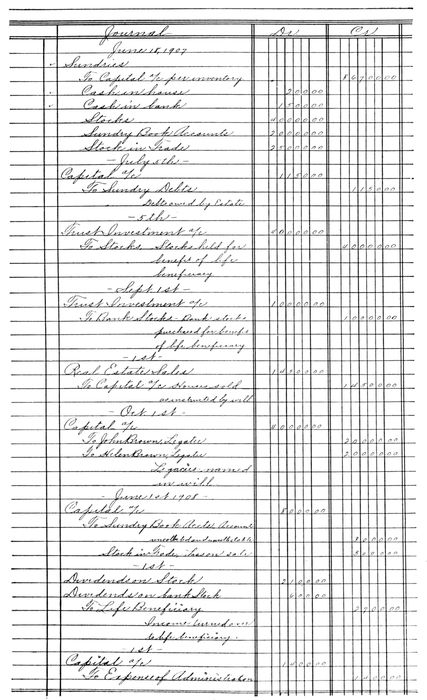 Journal Dr Cr
June 18, 1907
Sundries
To Capital a/c per inventory 8 6 7 0 0 0 0
Cash in house 2 0 0 0 0
Cash in bank 1 5 0 0 0 0
Stocks 4 0 0 0 0 0 0
Sundry Book Accounts 2 0 0 0 0 0 0
Stock in Trade 2 5 0 0 0 0 0
- July 5th -
Capital a/c 1 1 5 0 0 0
To Sundry Debts 1 1 5 0 0 0
Debts owed by Estate
- 5th -
Trust Investment a/c 4 0 0 0 0 0 0
To Stocks, Stocks held for 4 0 0 0 0 0 0
benefit of life
beneficiary
- Sept 1st -
Trust Investment a/c 1 0 0 0 0 0 0
To Bank Stocks - Bank stocks 1 0 0 0 0 0 0
purchased for benefit
of life beneficiary
- 1st -
Real Estate Sales 1 4 5 0 0 0 0
To Capital a/c Houses sold 1 4 5 0 0 0 0
as instructed by will
- Oct 1st -
Capital a/c 4 0 0 0 0 0 0
To John Brown, Legatee 2 0 0 0 0 0 0
To Helen Brown, Legatee 2 0 0 0 0 0 0
Legacies named
in will
- June 1st 1908 -
Capital a/c 8 0 0 0 0 0
To Sundry Book Accts Accounts
uncollected and uncollectable 3 0 0 0 0 0
Stock in Trade, Loss on sale 5 0 0 0 0 0
- 1st -
Dividends on Stock 2 1 0 0 0 0
Dividends on bank Stock 6 0 0 0 0
To Life Beneficiary 2 7 0 0 0 0
Income turned over
to life beneficiary.
- 1st -
Capital a/c 1 4 0 0 0 0
To Expense of Administration 1 4 0 0 0 0